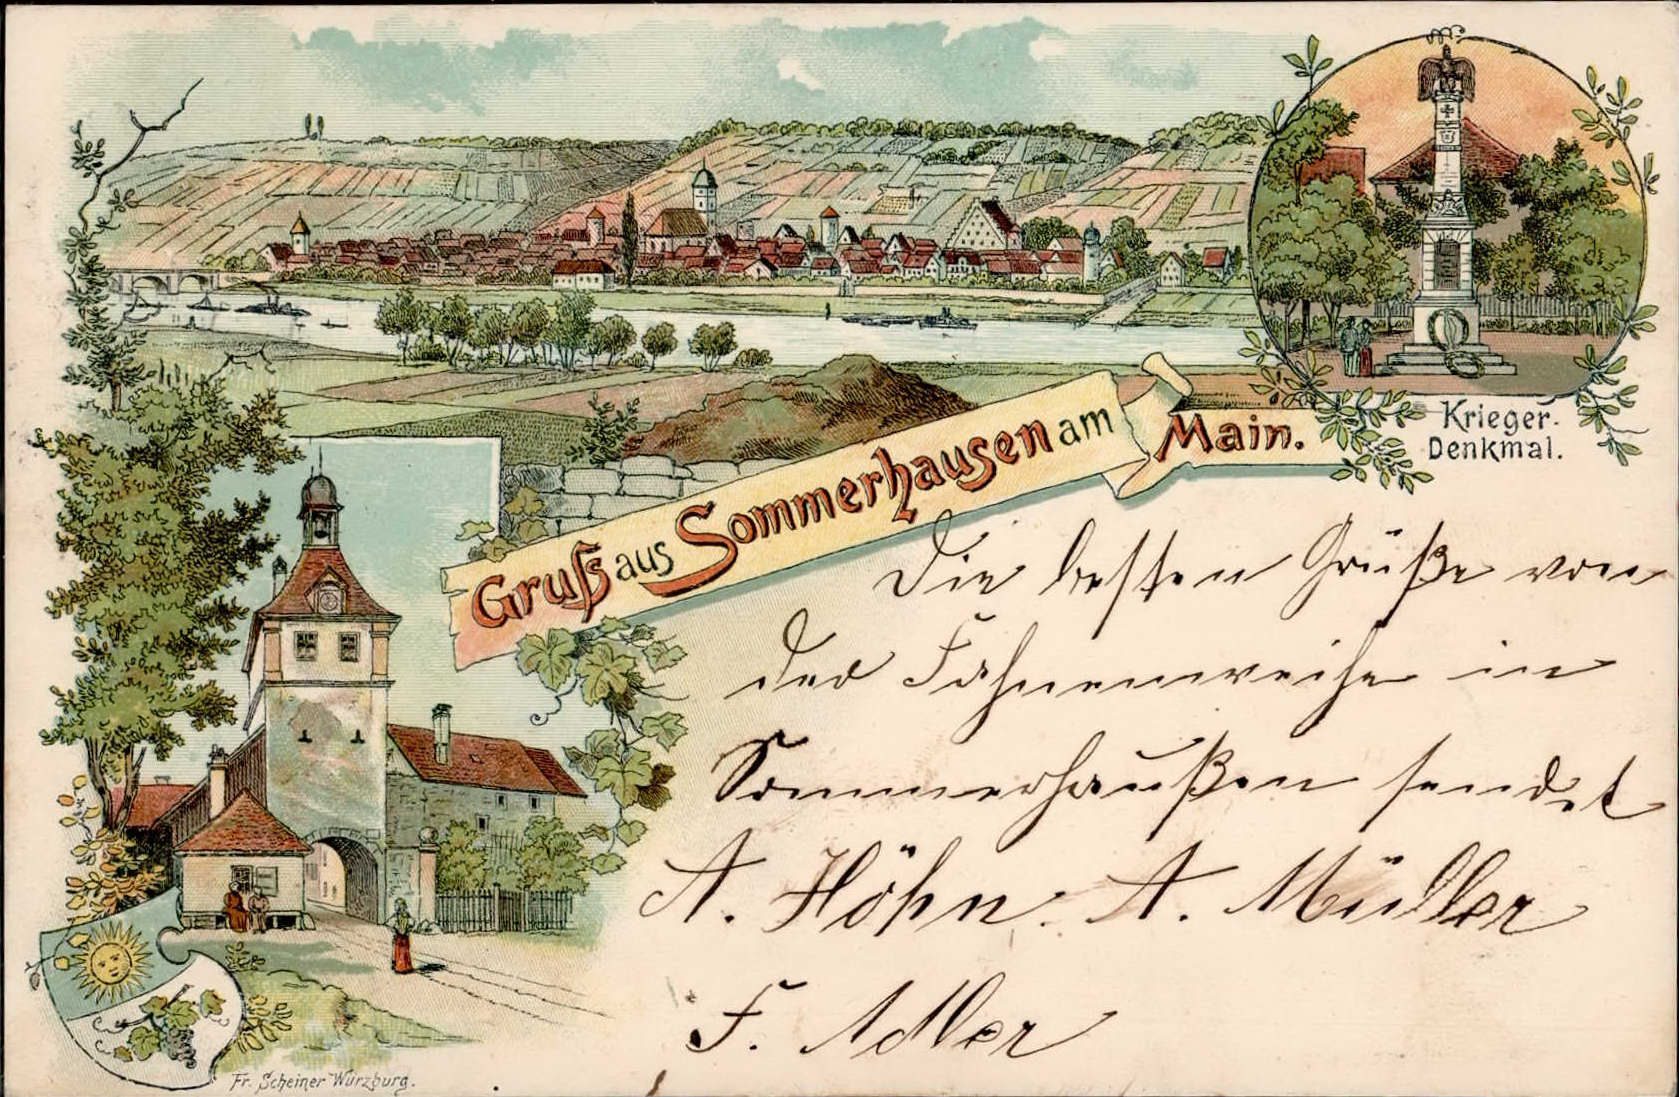 Gruß aus Sommerhausen am Main.
Krieger-
Denkmal.
Die besten Grüße von
der Fahnenweihe in
Sommerhaußen sendet
A. Höhn. A. Müller
F. Adler
Fr. Scheiner Würzburg.